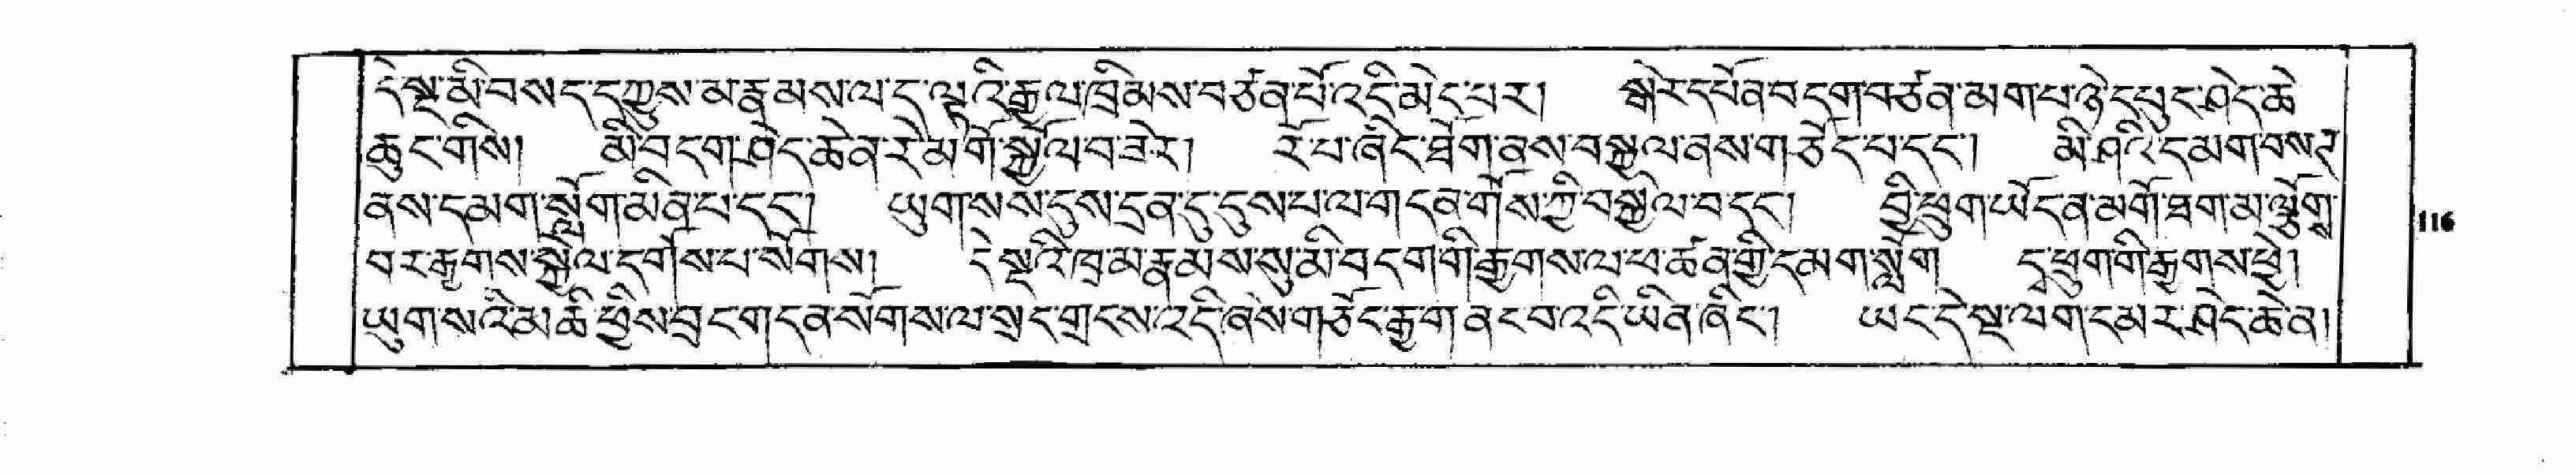 དེ་སྔ་མི་བསད་དཀྱུས་མ་རྣམས་ལ་ད་ལྟའི་རྒྱལ་ཁྲིམས་བཙན་པོ་འདི་མེད་པར། སྒེར་དཔོན་བདག་བཙན་མག་པ་ཉེ་དཔུང་ཤེད་ཆེ
ཆུང་གིས། མི་བདག་ཤེད་ཆེན་རེ་མགོ་སྐྱོལ་བ་ཟེར། རོ་པ་ཞིང་ཐོག་ནས་བསྐྱལ་ནས་གཅོད་པ་དང་། མི་ཤའི་དམག་བསད
ནས་དམག་སློག་མིན་པ་དང་། ཡུགས་ས་དུས་དྲན་དུ་དུས་པ་ལ་གདན་གོས་ཀྱི་བསྐྱེལ་བ་དང་། བྱི་ཕྲུག་ཡོད་ན་མགོ་ཐག་མ་ལྕོགྲ་
བར་རྒྱགས་སྐྱེལ་དགོས་པ་སོགས། དེ་སྔའི་ཁྲམ་རྣམས་སུ་མི་བདག་གི་རྒྱགས་ལ་ཕ་ཚན་གྱི་དམག་སློག དྭ་ཕྲུག་གི་རྒྱགས་ཕྱེ།
ཡུགས་འི་མཆི་ཕྱིས་བྲང་གདན་སོགས་ལ་སྲང་གྲངས་འདི་ཞེས་གཅོད་རྒྱག་ནང་བ་འདི་ཡིན་ཞིང་། ཡང་དེ་སྔ་ལག་དམར་ཤེད་ཆེན།
116